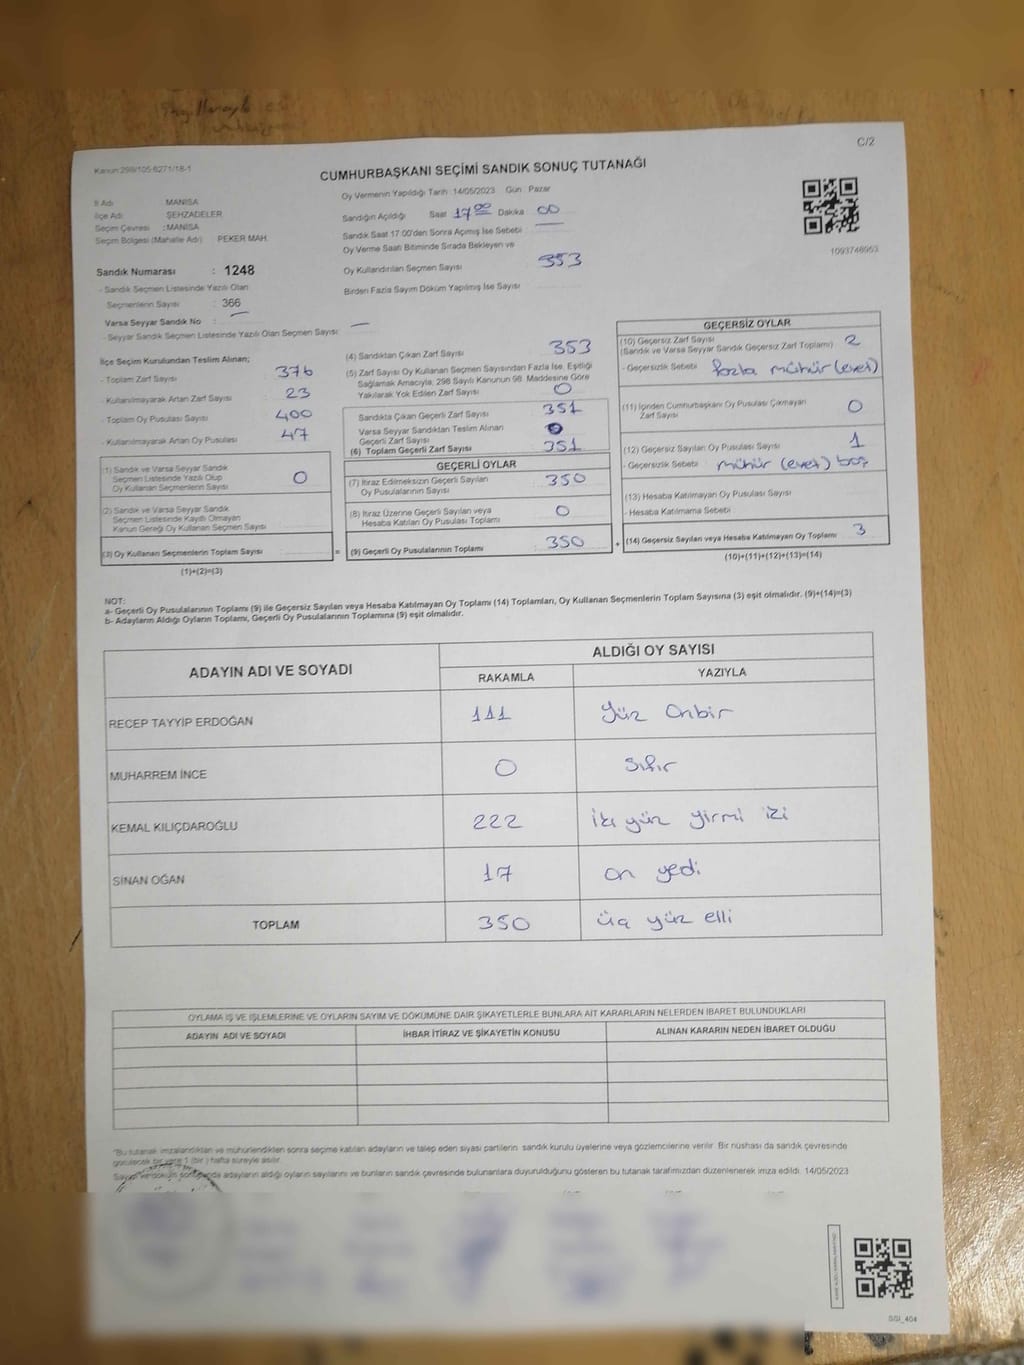 C/2
Kanun:298/105-6271/18-1
CUMHURBAŞKANI SEÇİMİ SANDIK SONUÇ TUTANAĞI
Oy Vermenin Yapıldığı Tarih :14/05/2023 Gün : Pazar
İl Adı MANİSA
İlçe Adı ŞEHZADELER
Seçim Çevresi : MANİSA
Seçim Bölgesi (Mahalle Adı) PEKER MAH.
Sandığın Açıldığı Saat 17 00 Dakika 00
Sandık Saat 17:00'den Sonra Açımış İse Sebebi
Oy Verme Saati Bitiminde Sırada Bekleyen ve
Oy Kullandırılan Seçmen Sayısı 353
Birden Fazla Sayım Döküm Yapılmış İse Sayısı
1093746953
Sandık Numarası : 1248
- Sandık Seçmen Listesinde Yazılı Olan
Seçmenlerin Sayısı : 366
Varsa Seyyar Sandık No : —
- Seyyar Sandık Seçmen Listesinde Yazılı Olan Seçmen Sayısı : —
İlçe Seçim Kurulundan Teslim Alınan;
- Toplam Zarf Sayısı 376
- Kullanılmayarak Artan Zarf Sayısı 23
- Toplam Oy Pusulası Sayısı 400
- Kullanılmayarak Artan Oy Pusulası 47
(1) Sandık ve Varsa Seyyar Sandık
Seçmen Listesinde Yazılı Olup
Oy Kullanan Seçmenlerin Sayısı 0
(2) Sandık ve Varsa Seyyar Sandık
Seçmen Listesinde Kayıtlı Olmayan
Kanun Gereği Oy Kullanan Seçmen Sayısı
(3) Oy Kullanan Seçmenlerin Toplam Sayısı
(1)+(2)=(3)
=
(4) Sandıktan Çıkan Zarf Sayısı 353
(5) Zarf Sayısı Oy Kullanan Seçmen Sayısından Fazla İse, Eşitliği
Sağlamak Amacıyla; 298 Sayılı Kanunun 98. Maddesine Göre
Yakılarak Yok Edilen Zarf Sayısı 0
Sandıkta Çıkan Geçerli Zarf Sayısı 351
Varsa Seyyar Sandıktan Teslim Alınan
Geçerli Zarf Sayısı 0
(6) Toplam Geçerli Zarf Sayısı 351
GEÇERLİ OYLAR
(7) İtiraz Edilmeksizin Geçerli Sayılan
Oy Pusulalarının Sayısı 350
(8) İtiraz Üzerine Geçerli Sayılan veya
Hesaba Katılan Oy Pusulası Toplamı 0
(9) Geçerli Oy Pusulalarının Toplamı 350
+
GEÇERSİZ OYLAR
(10) Geçersiz Zarf Sayısı 2
(Sandık ve Varsa Seyyar Sandık Geçersiz Zarf Toplamı)
- Geçersizlik Sebebi fazla mühür (evet)
(11) İçinden Cumhurbaşkanı Oy Pusulası Çıkmayan
Zarf Sayısı 0
(12) Geçersiz Sayılan Oy Pusulası Sayısı 1
- Geçersizlik Sebebi mühür (evet) boş
(13) Hesaba Katılmayan Oy Pusulası Sayısı
- Hesaba Katılmama Sebebi
(14) Geçersiz Sayılan veya Hesaba Katılmayan Oy Toplamı 3
(10)+(11)+(12)+(13)=(14)
NOT:
a- Geçerli Oy Pusulalarının Toplamı (9) ile Geçersiz Sayılan veya Hesaba Katılmayan Oy Toplamı (14) Toplamları, Oy Kullanan Seçmenlerin Toplam Sayısına (3) eşit olmalıdır. (9)+(14)=(3)
b- Adayların Aldığı Oyların Toplamı, Geçerli Oy Pusulalarının Toplamına (9) eşit olmalıdır.
ADAYIN ADI VE SOYADI ALDIĞI OY SAYISI
RAKAMLA YAZIYLA
RECEP TAYYİP ERDOĞAN 111 Yüz Onbir
MUHARREM İNCE 0 Sıfır
KEMAL KILIÇDAROĞLU 222 iki yüz yirmi iki
SİNAN OĞAN 17 on yedi
TOPLAM 350 üç yüz elli
OYLAMA İŞ VE İŞLEMLERİNE VE OYLARIN SAYIM VE DÖKÜMÜNE DAİR ŞİKAYETLERLE BUNLARA AİT KARARLARIN NELERDEN İBARET BULUNDUKLARI
ADAYIN ADI VE SOYADI İHBAR İTİRAZ VE ŞİKAYETİN KONUSU ALINAN KARARIN NEDEN İBARET OLDUĞU
"Bu tutanak imzalandıktan ve mühürlendikten sonra seçime katılan adayların ve talep eden siyasi partilerin sandık kurulu üyelerine veya gözlemcilerine verilir. Bir nüshası da sandık çevresinde
görülecek bir yere 1 (bir) hafta süreyle asılır.
Sayım ve döküm sonucunda adayların aldığı oyların sayılarını ve bunların sandık çevresinde bulunanlara duyurulduğunu gösteren bu tutanak tarafımızdan düzenlenerek imza edildi. 14/05/2023
SSI_404